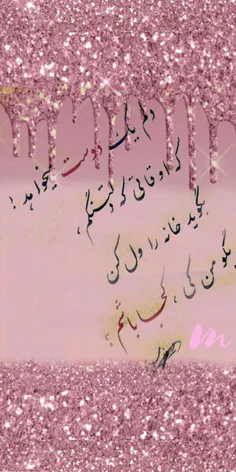 دلم یک دوست میخواهد!
که اوقاتی که دلتنگم،
بگوید خانه را ول کن
بگو من کی، کجا باشم؟
m